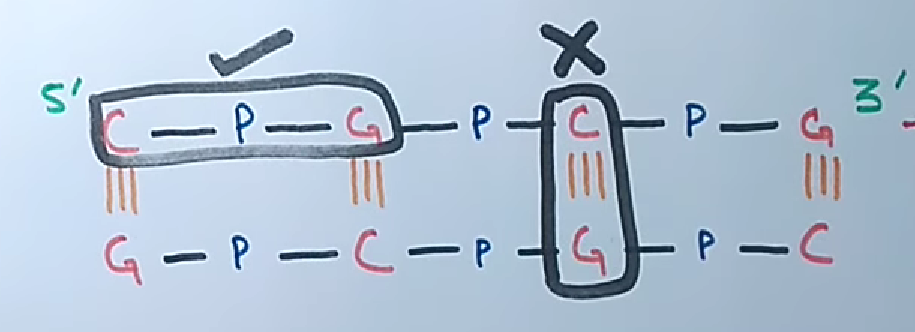 5' C — P — G — P — C — P — G 3'
G — P — C — P — G — P — C